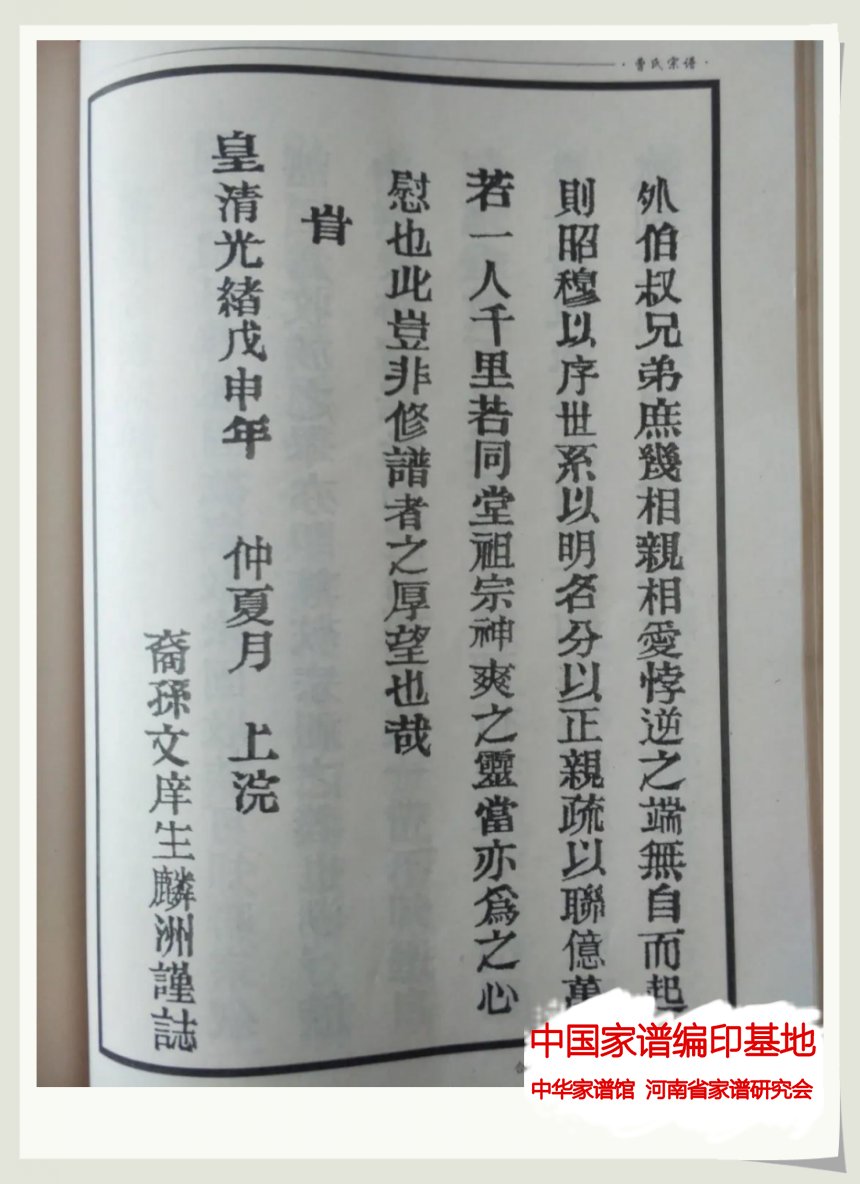 ·曹氏宗谱·
外伯叔兄弟庶幾相親相愛悖逆之端無自而起
則昭穆以序世系以明名分以正親疏以聯億萬
若一人千里若同堂祖宗神爽之靈當亦爲之心
慰也此豈非修譜者之厚望也哉
旹
皇清光緒戊申年 仲夏月 上浣
裔孫文庠生麟洲謹誌
中国家谱编印基地
中华家谱馆 河南省家谱研究会